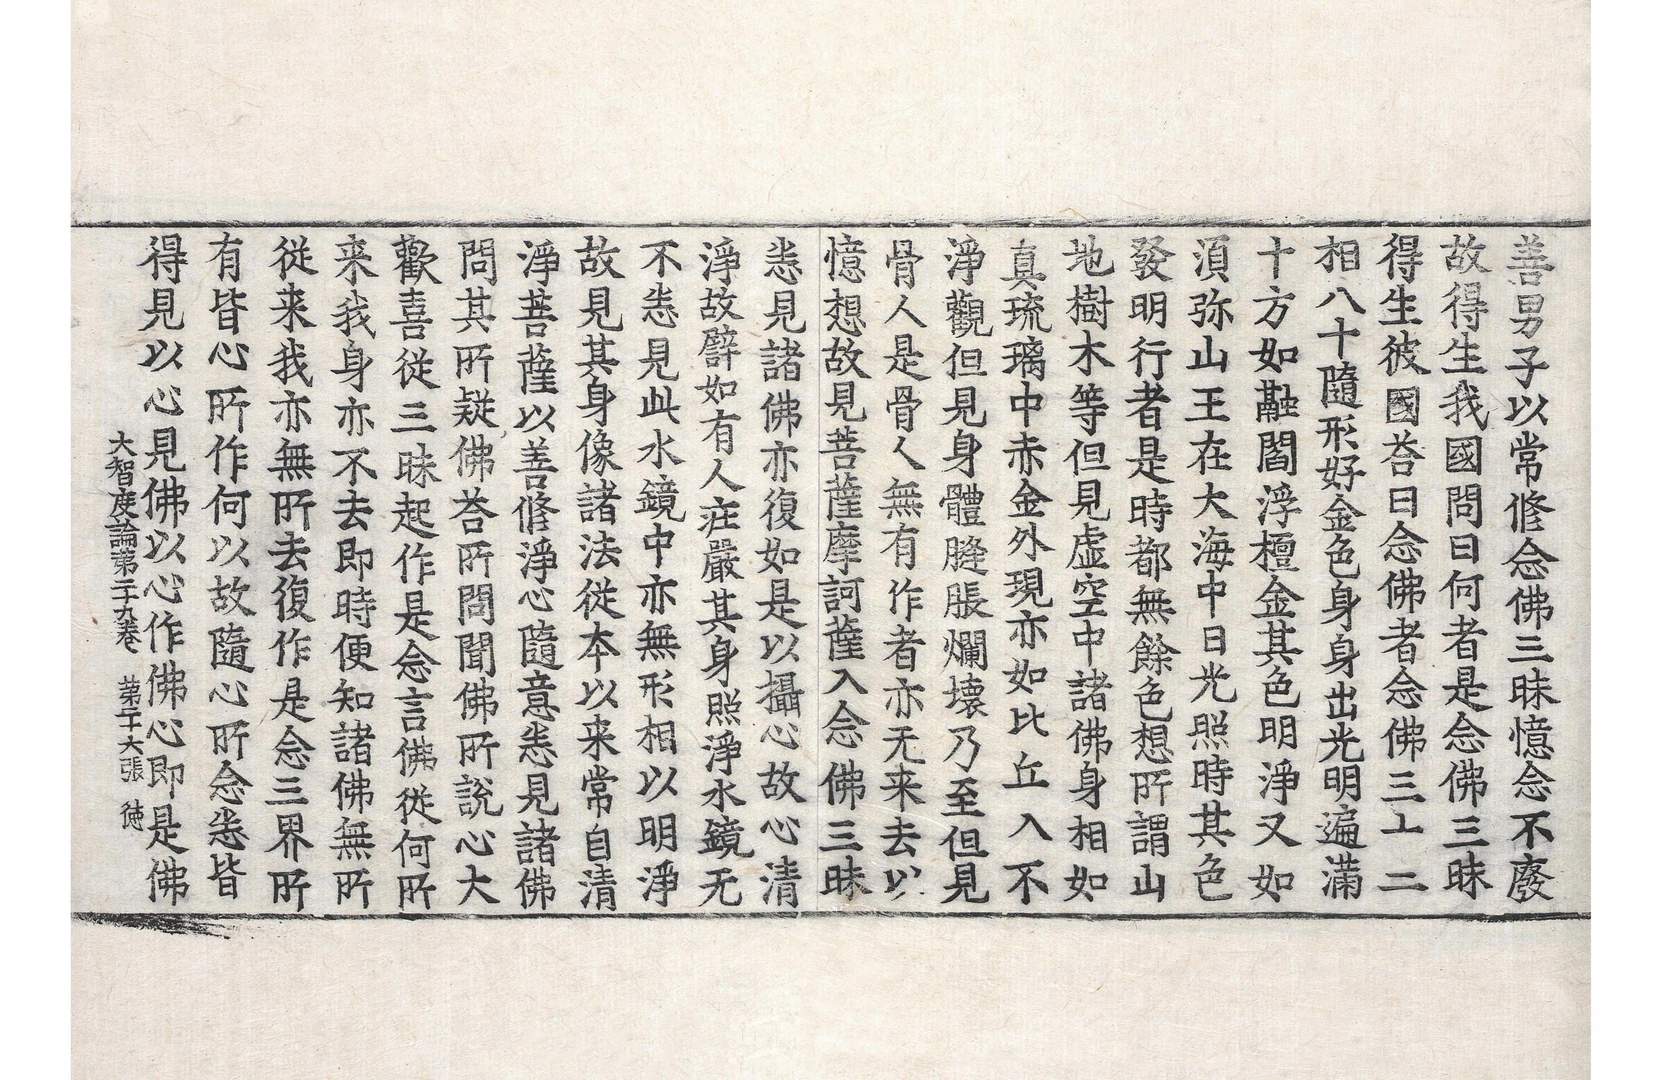 善男子以常修念佛三昧憶念不廢
故得生我國問曰何者是念佛三昧
得生彼國荅曰念佛者念佛三十二
相八十隨形好金色身身出光明遍滿
十方如融閻浮檀金其色明淨又如
須弥山王在大海中日光照時其色
發明行者是時都無餘色想所謂山
地樹木等但見虛空中諸佛身相如
真琉璃中赤金外現亦如比丘入不
淨觀但見身體膖脹爛壞乃至但見
骨人是骨人無有作者亦无来去以
憶想故見菩薩摩訶薩入念佛三昧
悉見諸佛亦復如是以攝心故心清
淨故譬如有人莊嚴其身照淨水鏡无
不悉見此水鏡中亦無形相以明淨
故見其身像諸法從本以来常自清
淨菩薩以善修淨心隨意悉見諸佛
問其所疑佛荅所問聞佛所說心大
歡喜從三昧起作是念言佛從何所
来我身亦不去即時便知諸佛無所
從来我亦無所去復作是念三界所
有皆心所作何以故隨心所念悉皆
得見以心見佛以心作佛心即是佛
大智度論第二十九卷 第二十六張 徳